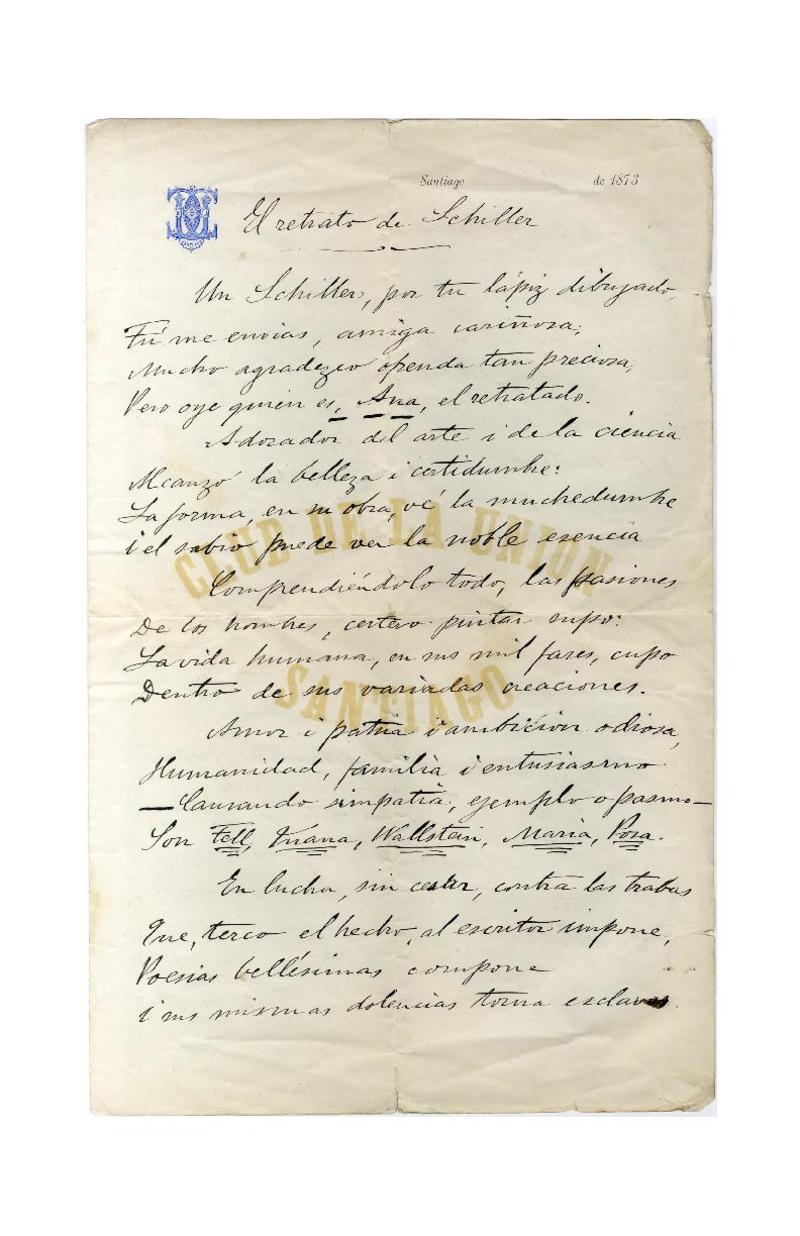 Santiago de 1873
El retrato de Schiller
Un Schiller, por tu lápiz dibujado,
Tú me envias, amiga cariñosa;
Mucho agradezco ofrenda tan preciosa,
Pero oye quien es, Ana, el retratado.
Adorador del arte i de la ciencia
Alcanzó la belleza i certidumbre:
La forma, en su obra, vé la muchedumbre
i el sabio puede ver la noble esencia
CLUB DE LA UNION
Comprendiéndolo todo, las pasiones
De los hombres, certero pintar supo:
La vida humana, en sus mil fases, cupo
Dentro de sus variadas creaciones.
SANTIAGO
Amor i patria i ambición odiosa,
Humanidad, familia i entusiasmo
—Causando simpatía, ejemplo o pasmo—
Son Tell, Juana, Wallstein, María, Posa.
En lucha, sin cesar, contra las trabas
Que, terco el hecho, al escritor impone,
Poesias bellísimas compone
i sus mismas dolencias torna esclavas.